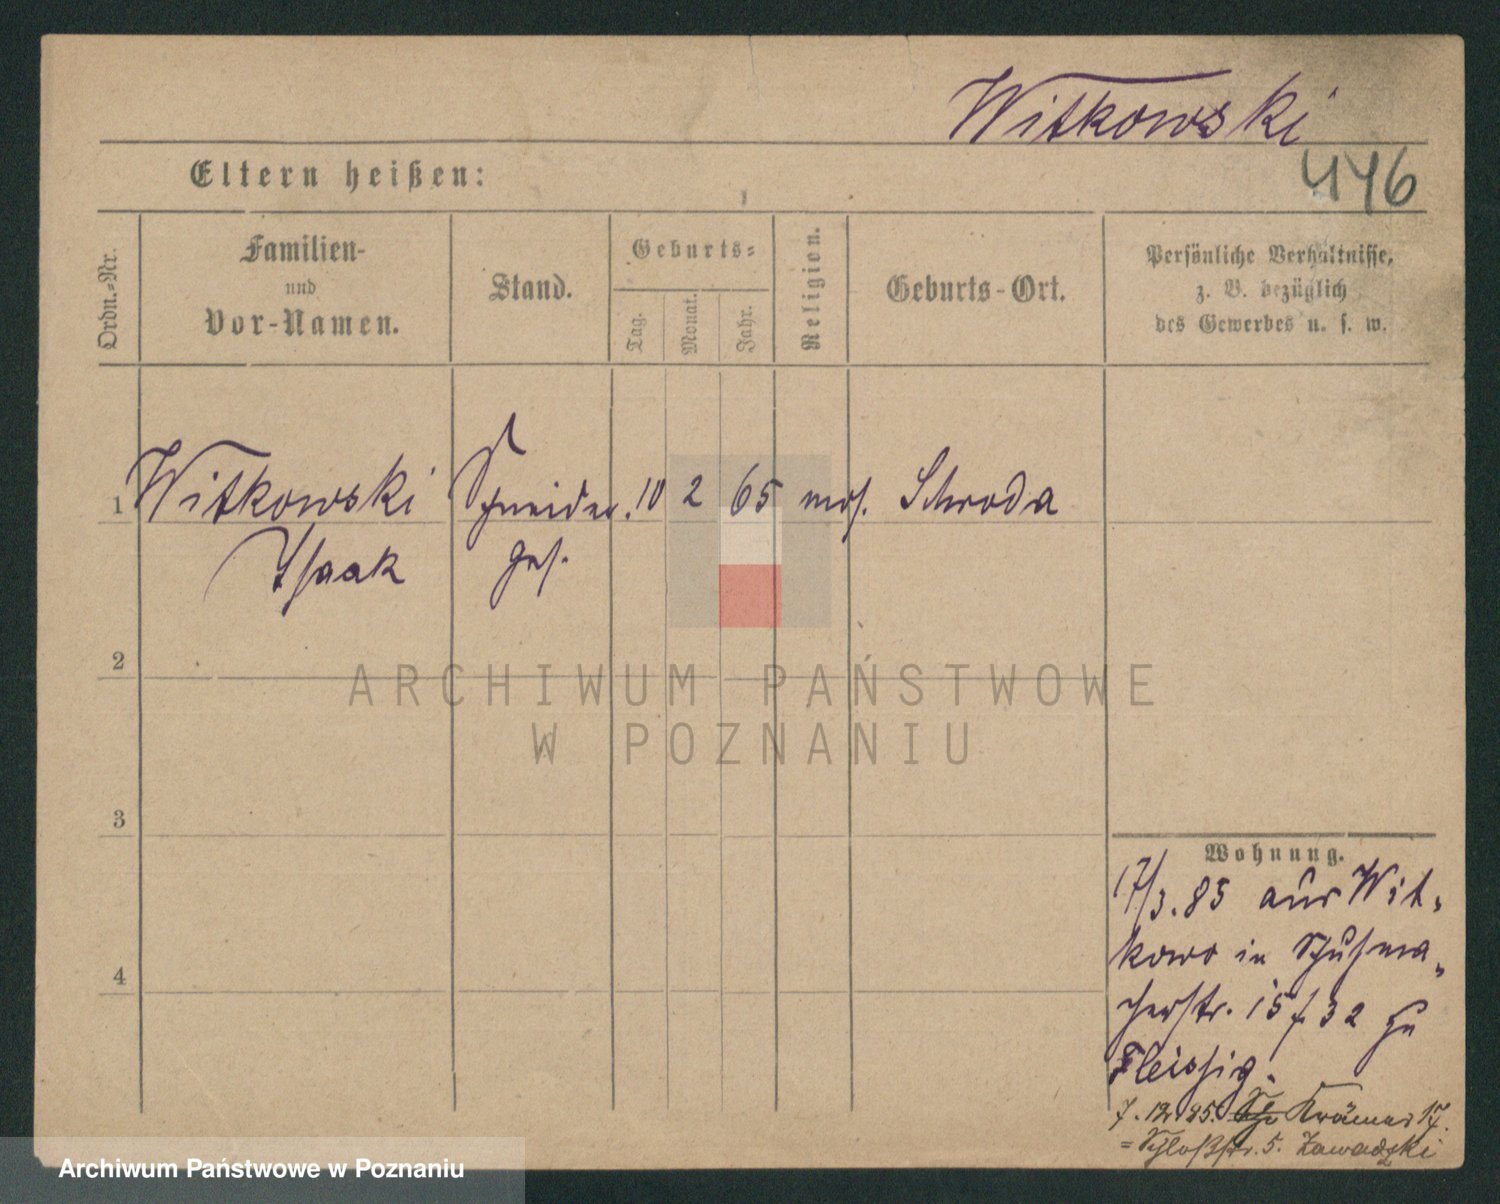 Witkowski
446
Eltern heißen:
Ordn.-Nr.
Familien-
und
Vor-Namen.
Stand.
Geburts-
Tag.
Monat.
Jahr.
Religion.
Geburts-Ort.
Persönliche Verhältnisse,
z. B. bezüglich
des Gewerbes u. s. w.
1 Witkowski Schneider. 10 2 65 mos. Schroda
Isaak ges.
2
3
4
ARCHIWUM PAŃSTWOWE
W POZNANIU
Wohnung.
17/3.85 aus Wit-
kowo in Schuhma-
cherstr. 15/32 zu
Fleissig.
7. 12. 85. Krämerstr.
= Schloßstr. 5. Zawadzki
Archiwum Państwowe w Poznaniu